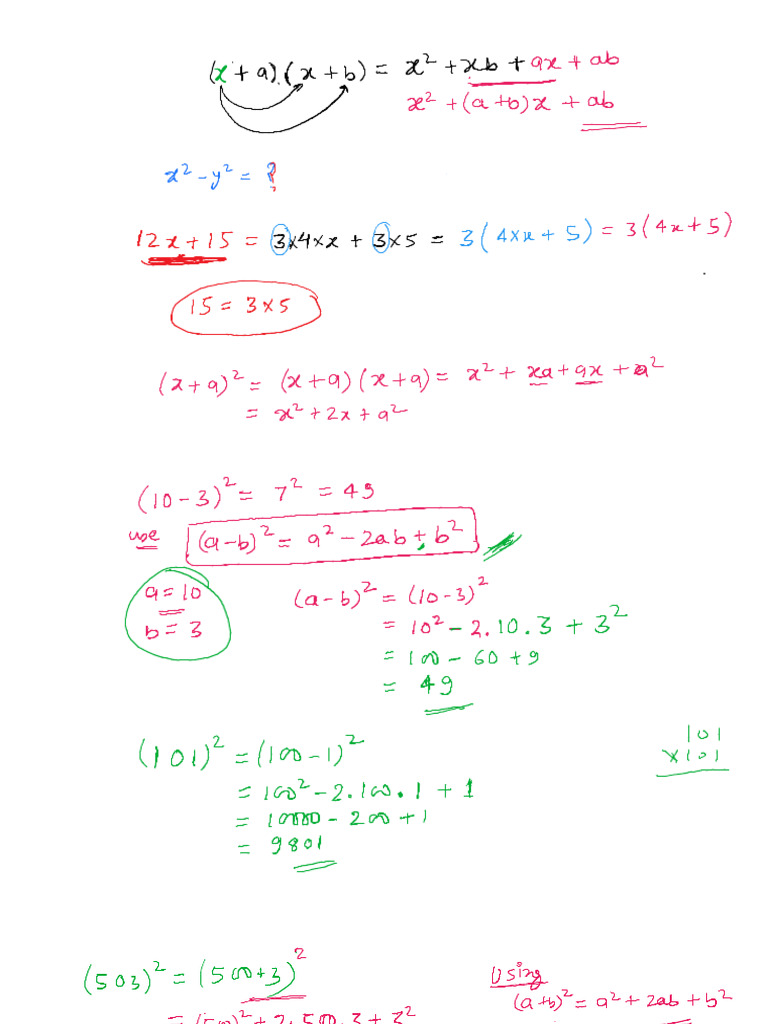 (x + a).(x + b) = x² + xb + ax + ab
x² + (a+b)x + ab
x² - y² = ?
12x + 15 = 3×4×x + 3×5 = 3(4×x + 5) = 3(4x + 5)
15 = 3×5
(x + a)² = (x+a)(x+a) = x² + xa + ax + a²
= x² + 2x + a²
(10 - 3)² = 7² = 49
use (a-b)² = a² - 2ab + b²
a = 10
b = 3
(a - b)² = (10 - 3)²
= 10² - 2.10.3 + 3²
= 100 - 60 + 9
= 49
(101)² = (100 - 1)²
= 100² - 2.100.1 + 1
= 10000 - 200 + 1
= 9801
101
×101
(503)² = (500+3)²
= (500)² + 2.500.3 + 3²
Using
(a+b)² = a² + 2ab + b²